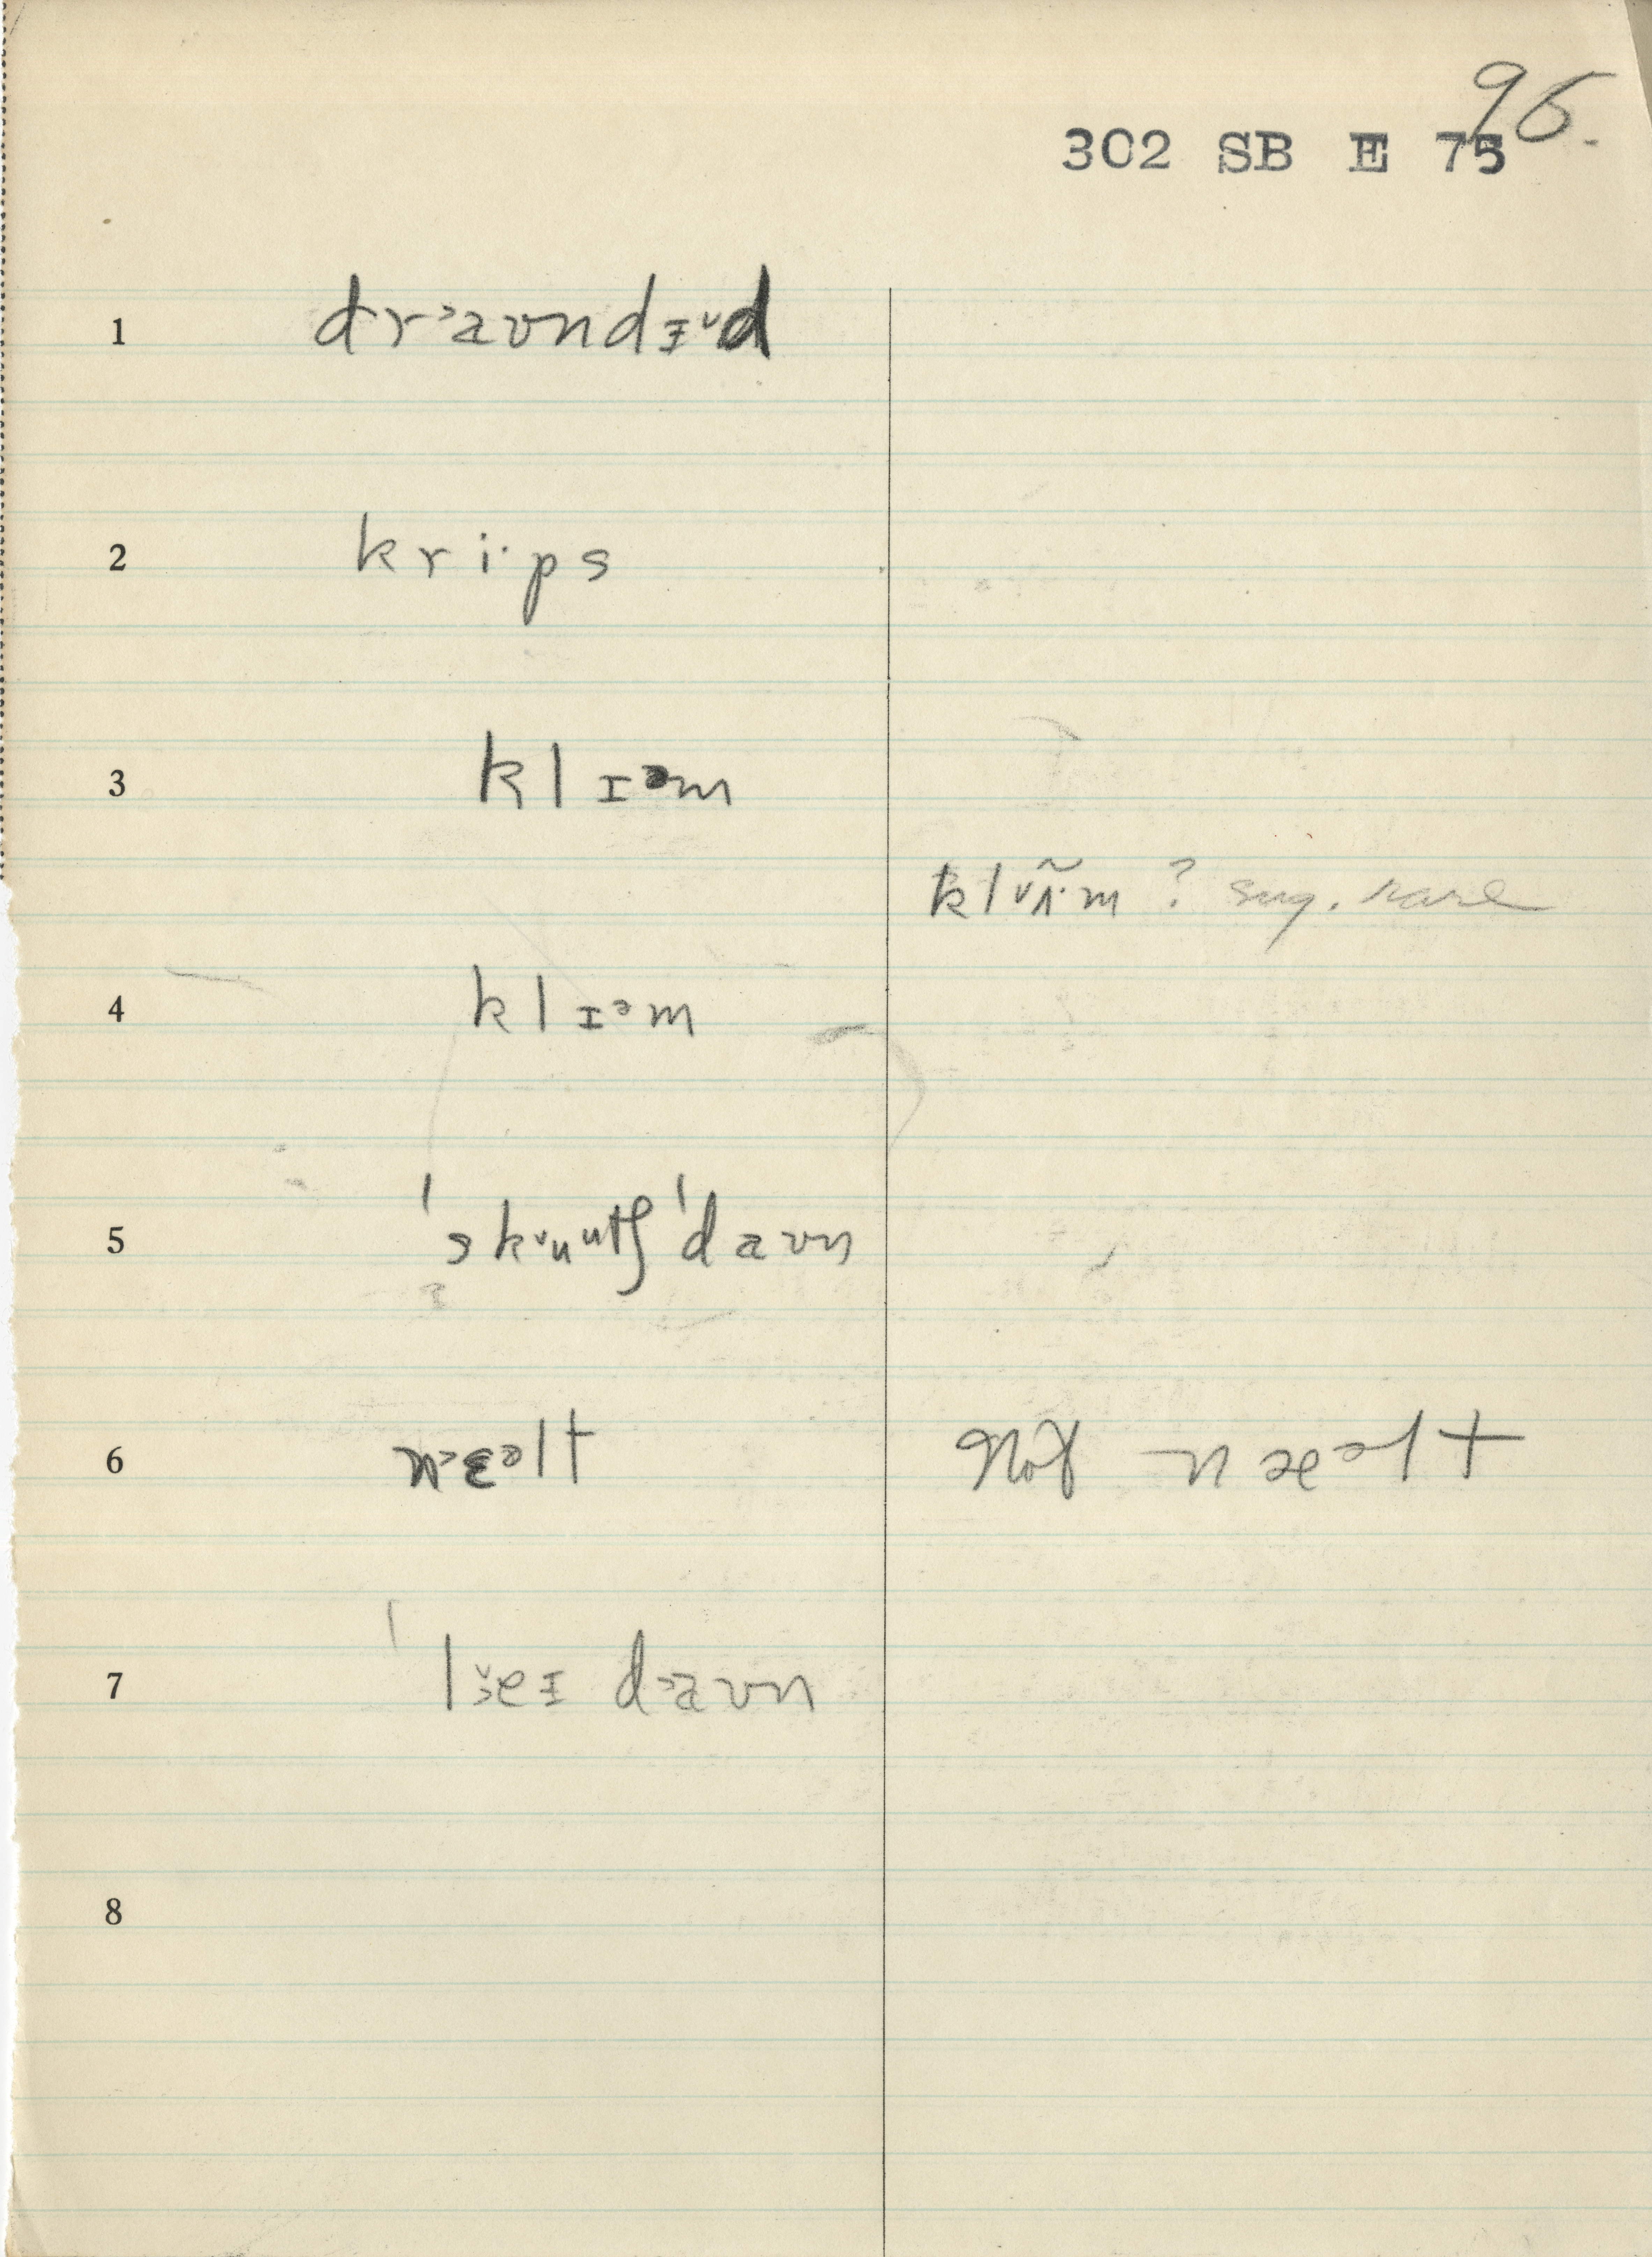 96.
302 SB E 75
1 dr˃aʊndɪ˅d
2 kri·ps
3 klɪᵊm
klᵛʌ̃·m ? sug. rare
4 klɪᵊm
5 ˈskᵛuᵘtʃˈdaʊn
6 n˃ɛᵊlt Not næᵊlt
7 ˈl˅˃eɪ d˃aʊn
8